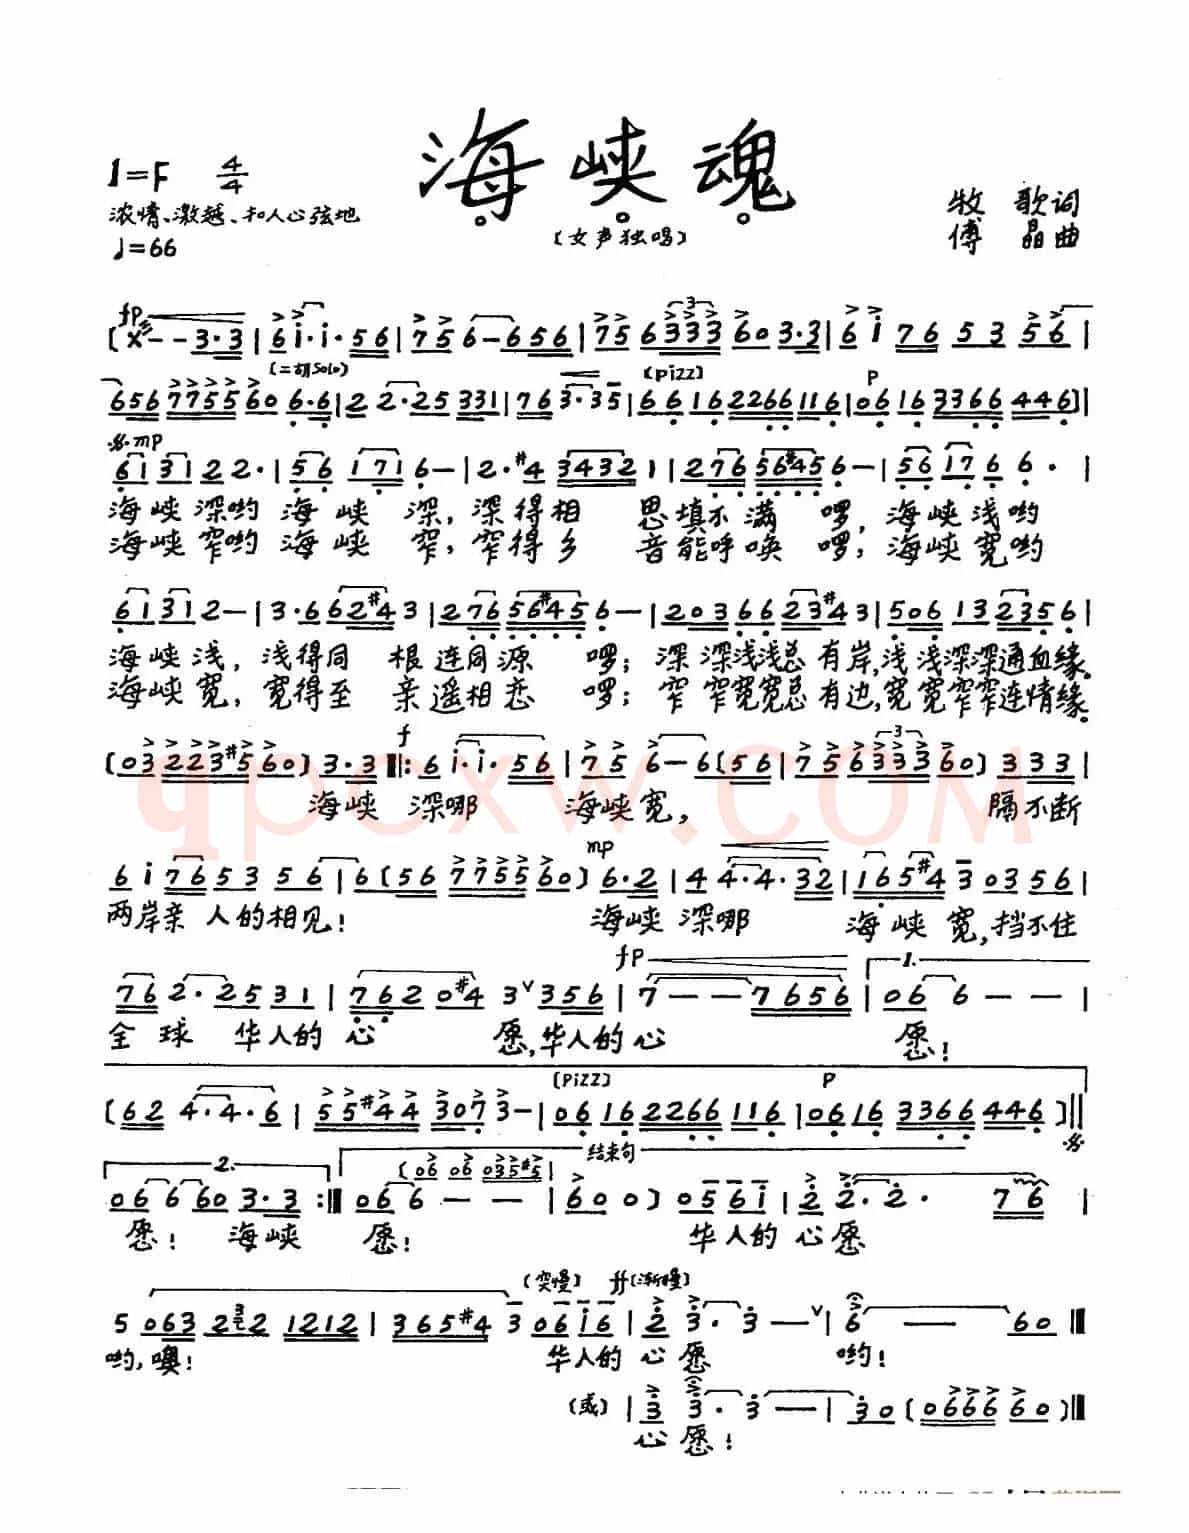 海峡魂
1=F 4/4
浓情、激越、扣人心弦地
♩=66
(女声独唱)
牧 歌词
傅 晶曲
fp
(X - - 3·3 | 6 i·i·56 | 75 6-656 | 75 6333 60 3·3 | 6 i 76 53 56 |
(二胡Solo) (pizz) p
656 7755 60 6·6 | 2 2·25 331 | 76 3·35 | 66 16 2266 116 | 06 16 3366 446) |
mp
61 31 2 2· | 56 171 6- | 2·#4 3432 1 | 276 56#456 6- | 56 176 6· |
海峡深哟 海峡 深,深得相 思填不满 啰,海峡浅哟
海峡窄哟 海峡 窄,窄得乡 音能呼唤 啰;海峡宽哟
61 31 2- | 3·6 62#43 | 276 56#45 6- | 203 66 23#43 | 506 13 235 6 |
海峡浅,浅得同 根连同源 啰;深 深浅浅总 有岸,浅浅深深通血缘。
海峡宽,宽得至 亲遥相恋 啰;窄 窄宽宽总 有边,宽宽窄窄连情缘。
f
(03 223 #560) 3·3 |: 6 i·i·56 | 75 6-6(56 | 75 6333 60) 333 |
海峡 深哪 海峡宽, 隔不断
mp
6 i 76 53 56 | 6(56 7755 60) 6·2 | 4 4·4·32 | 165#4 3 03 56 |
两岸亲 人的相见! 海峡 深哪 海峡 宽,挡不住
fp 1.
76 2·2531 | 762 0#4 3 356 | 7--7656 | 06 6 - - |
全 球 华人的 心 愿,华人的心 愿!
(pizz) p
(62 4·4·6 | 55#44 3073- | 06 16 2266 116 | 06 16 3366 446) ||
2. 结束句
(06 06 035#5)
06 6 60 3·3 :|| 06 6 - - | 600) 05 6 i | 2 2·2· 76 |
愿! 海峡 愿! 华人的 心愿
(突慢) ff(渐慢)
5 063 232 1212 | 365#4 3 06 i6 | 2 3·3- | 6 - 60 ||
哟,噢! 华人的 心愿 哟!
(或) | 3 3·3- | 30 (0666 60) ||
心愿!
qpcxw.com